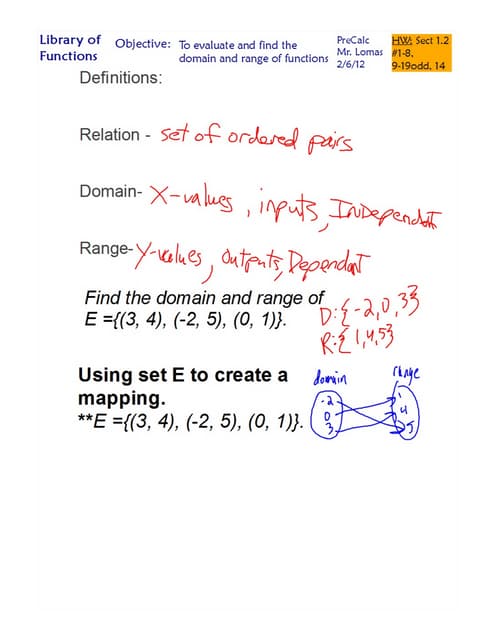 Library of Functions
Objective: To evaluate and find the domain and range of functions
PreCalc
Mr. Lomas
2/6/12
HW: Sect 1.2
#1-8,
9-19odd, 14
Definitions:
Relation - set of ordered pairs
Domain- X-values, inputs, Independent
Range- Y-values, outputs, Dependant
Find the domain and range of
E ={(3, 4), (-2, 5), (0, 1)}.
D:{-2,0,3}
R:{1,4,5}
Using set E to create a
mapping.
**E ={(3, 4), (-2, 5), (0, 1)}.
domain
-2
0
3
range
1
4
5